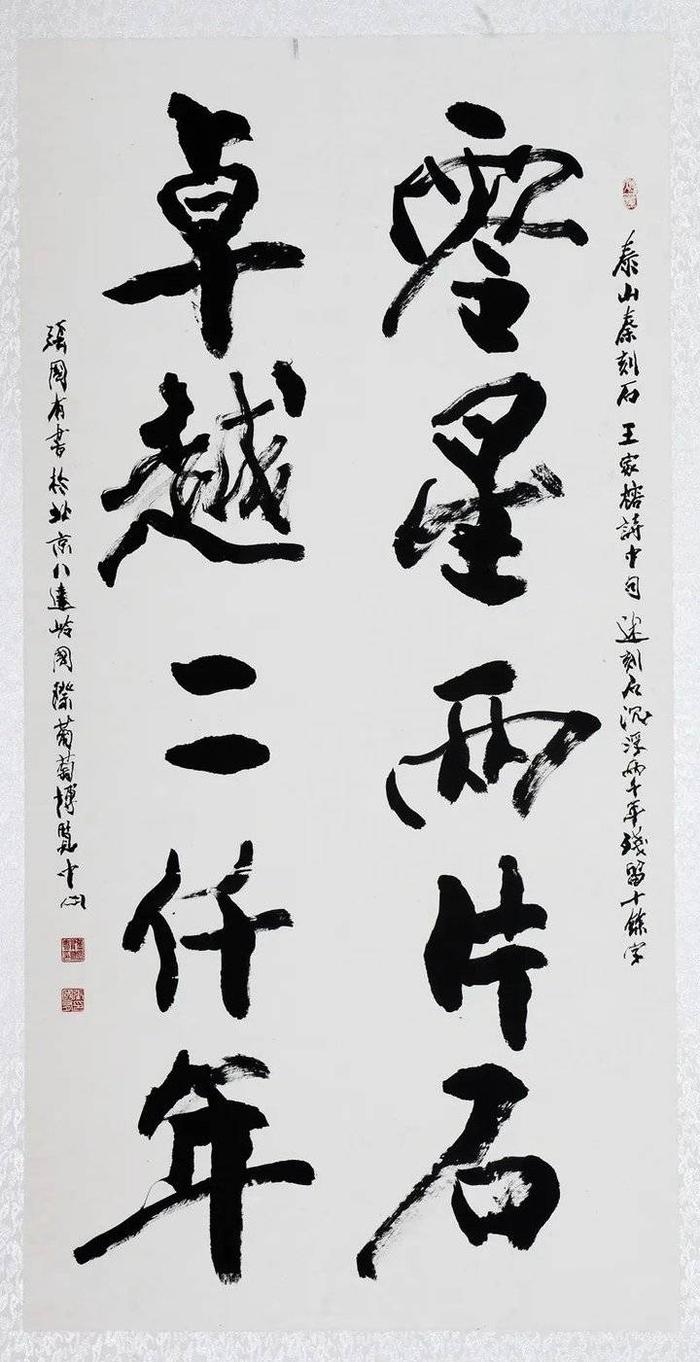 泰山秦刻石 王家榕詩中句 述刻石沉浮两千年残留十餘字
零星两片石
卓越二仟年
張國有書於北京八達岭國際葡萄博覽中心